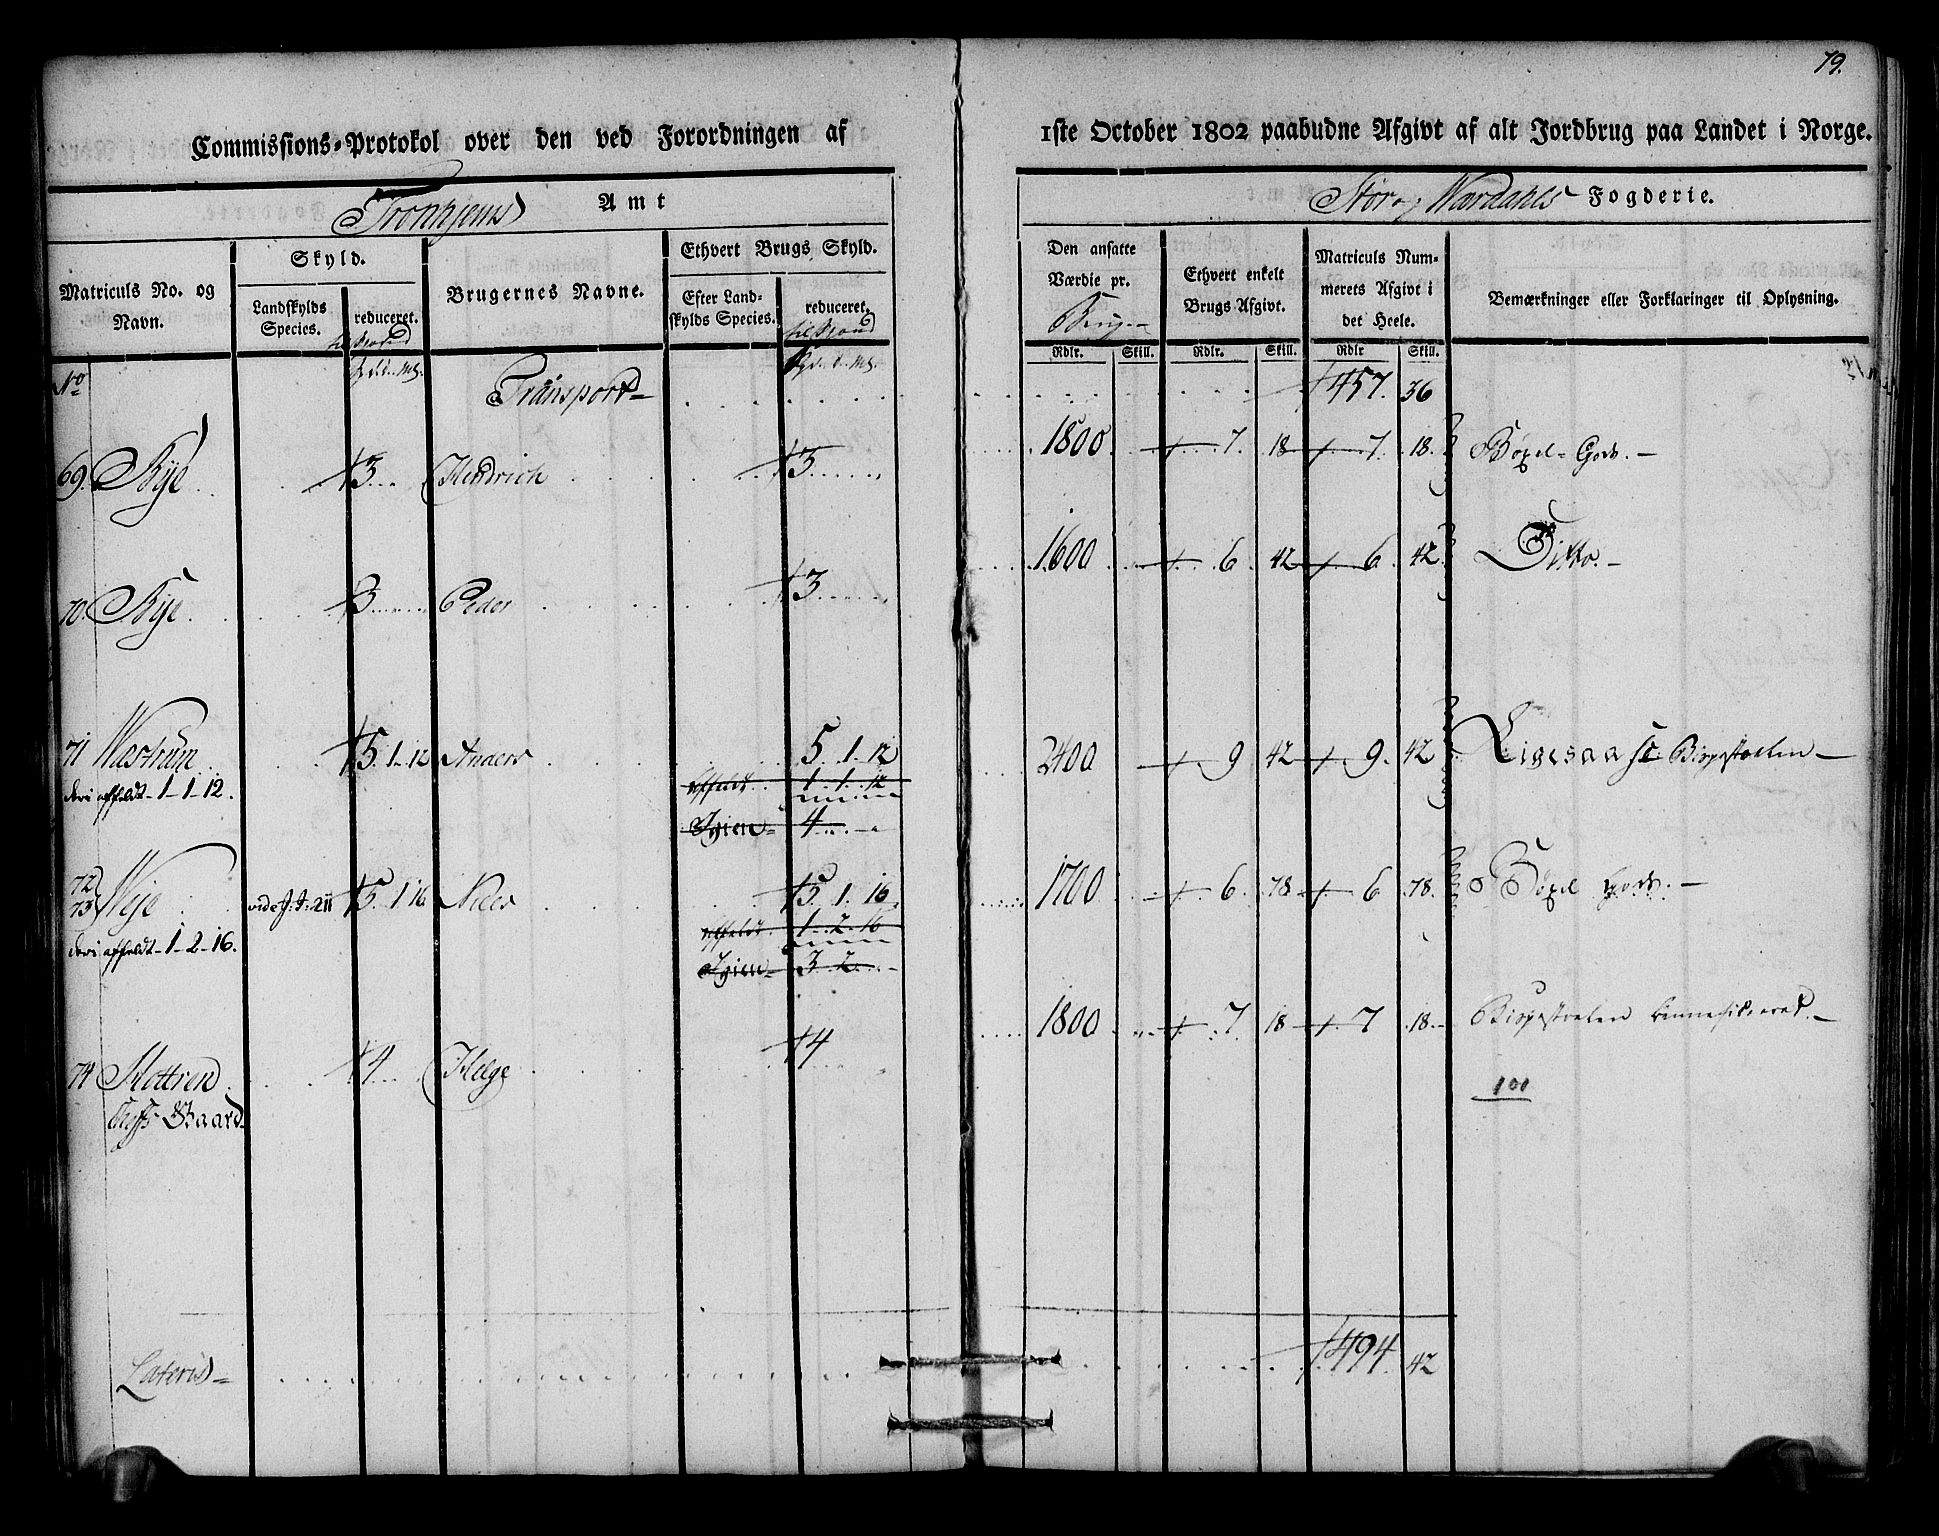 79.
Commissions-Protokol over den ved Forordningen af 1ste October 1802 paabudne Afgivt af alt Jordbrug paa Landet i Norge.
Tronhjems Amt
Stør og Værdahls Fogderie.
Matriculs No. og Navn.
Skyld.
Landskylds Species.
reduceret. til Spand
Spd. Ø. Mk.
Brugernes Navne.
Ethvert Brugs Skyld.
Efter Landskylds Species.
reduceret. til Spand
Spd. Ø. Mk.
Den ansatte Værdie pr. Brug
Rdlr. Skill.
Ethvert enkelt Brugs Afgivt.
Rdlr. Skill.
Matriculs Nummerets Afgivt i det Heele.
Rdlr Skill.
Bemærkninger eller Forklaringer til Oplysning.
No
Transport 457. 36
69. Bye 3 Hendrich 3 1800 7. 18 7. 18. Bøxel-Gods.
70. Bye 3 Peder 3 1600 6 42 6 42 Ditto.
71 Wastrum 5. 1 12 Anders 5. 1. 12 2400 9 42 9. 42
deri affældt 1-1-12. affældt 1. 1. 12
Igien 4
72 73 Weje vide J: J: 211 5. 1 16 Niels 5. 1. 16 1700 6. 78 6 78. Bøxel Gods.
deri affældt 1-2-16. affældt 1. 2. 16
Igien 3. 2
74 4 Helge 4 1800 7 18 7 18.
Gaard
100
Lateris 494. 42